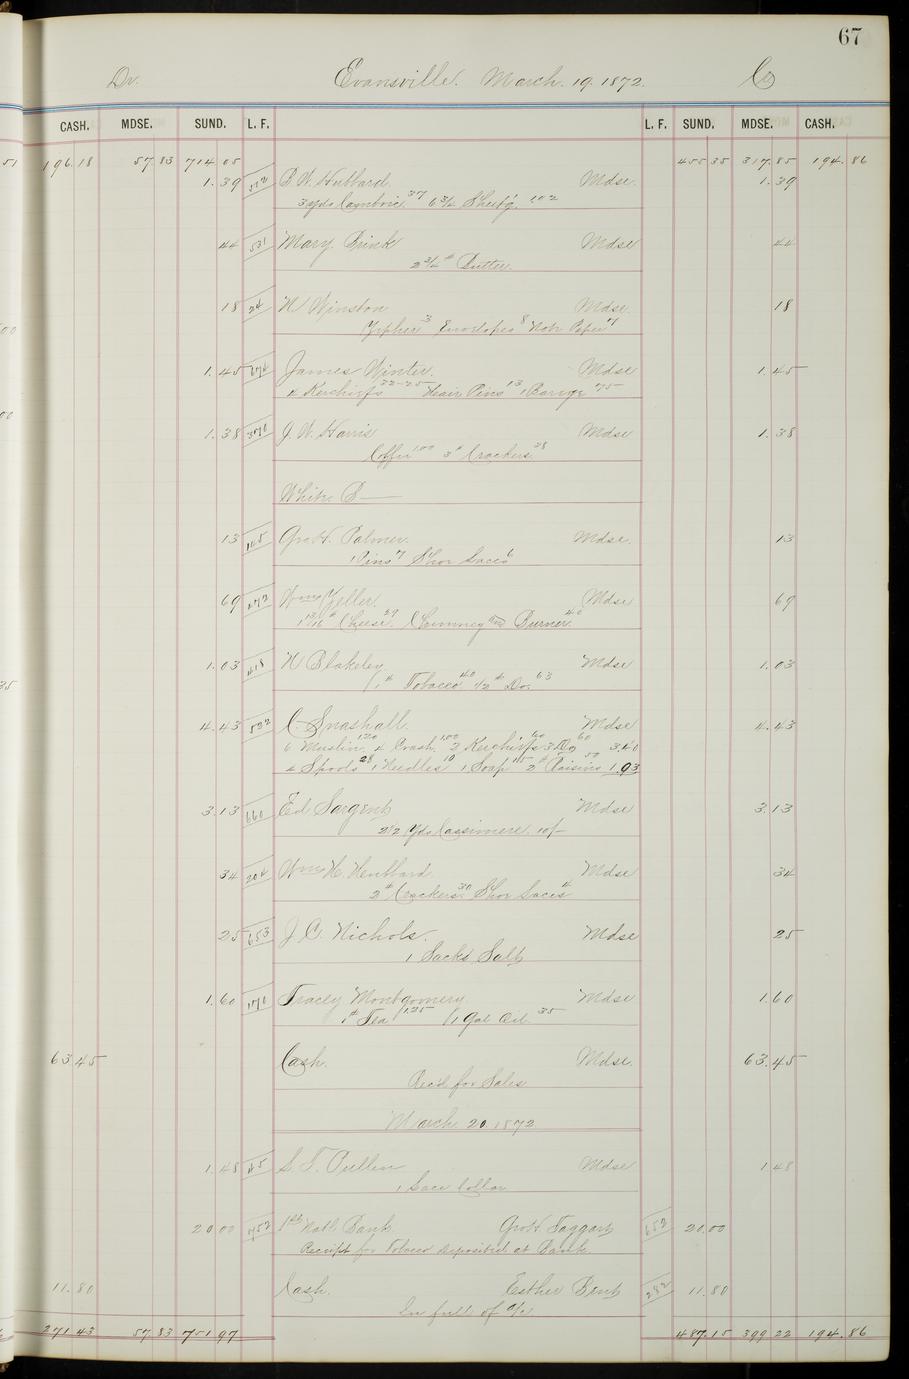 67
Dr. Evansville. March. 19. 1872. Cr
CASH. MDSE. SUND. L. F. L. F. SUND. MDSE. CASH.
196.18 57.83 714.05 455.35 317.85 194.86
1.39 512 B. W. Hubbard. Mdse. 1.39
3 yds Cambric 37 6 3/4 Sheet'g. 1.02
44 531 Mary. Brink Mdse 44
2 3/4 # Butter.
18 24 N Winston Mdse. 18
Zepher 3 Envelopes 8 Note Paper 7
1.45 674 James Winter. Mdse 1.45
4 Kerchiefs 32-25 Hair Pins 13 1 Barege 75
1.38 370 J. W. Harris Mdse 1.38
Coffee 1.00 3 # Crackers 38
White B
13 145 Geo. H. Palmer. Mdse. 13
1 Pins 7 Shoe Laces 6
69 272 Wm Zeller. Mdse 69
1 13/16 # Cheese. 29 Chimney and Burner. 40
1.03 418 N Blakeley Mdse 1.03
1 # Tobacco 40 1/2 # Do. 63
4.43 522 C. Snashall. Mdse 4.43
6 Muslin 1.20 4 Crash 1.00 2 Kerchiefs 60 3 Do 60 3.40
4 Spools 28 1 Needles 10 1 Soap 15 2 # Raisins 50 1.03
3.13 660 Ed Sargent Mdse 3.13
2 1/2 Yds Cassimere 10/-
34 204 Wm H. Hubbard. Mdse 34
2 # Crackers. 30 Shoe Laces 4
25 653 J. C. Nichols. Mdse 25
1 Sacks Salt
1.60 170 Tracey Montgomery Mdse 1.60
1 # Tea 1.25 1 Gal Oil. 35
63.45 Cash. Mdse. 63.45
Rec'd for Sales
March 20. 1872
1.48 45 S. T. Pullen Mdse 1.48
1 Lace Collar
20.00 452 1st Natl. Bank. Geo H. Taggart 652 20.00
Receipt for Tobacco deposited at Bank.
11.80 Cash. Esther Bent 282 11.80
In full of a/c
271.43 57.83 751.97 487.15 399.22 194.86